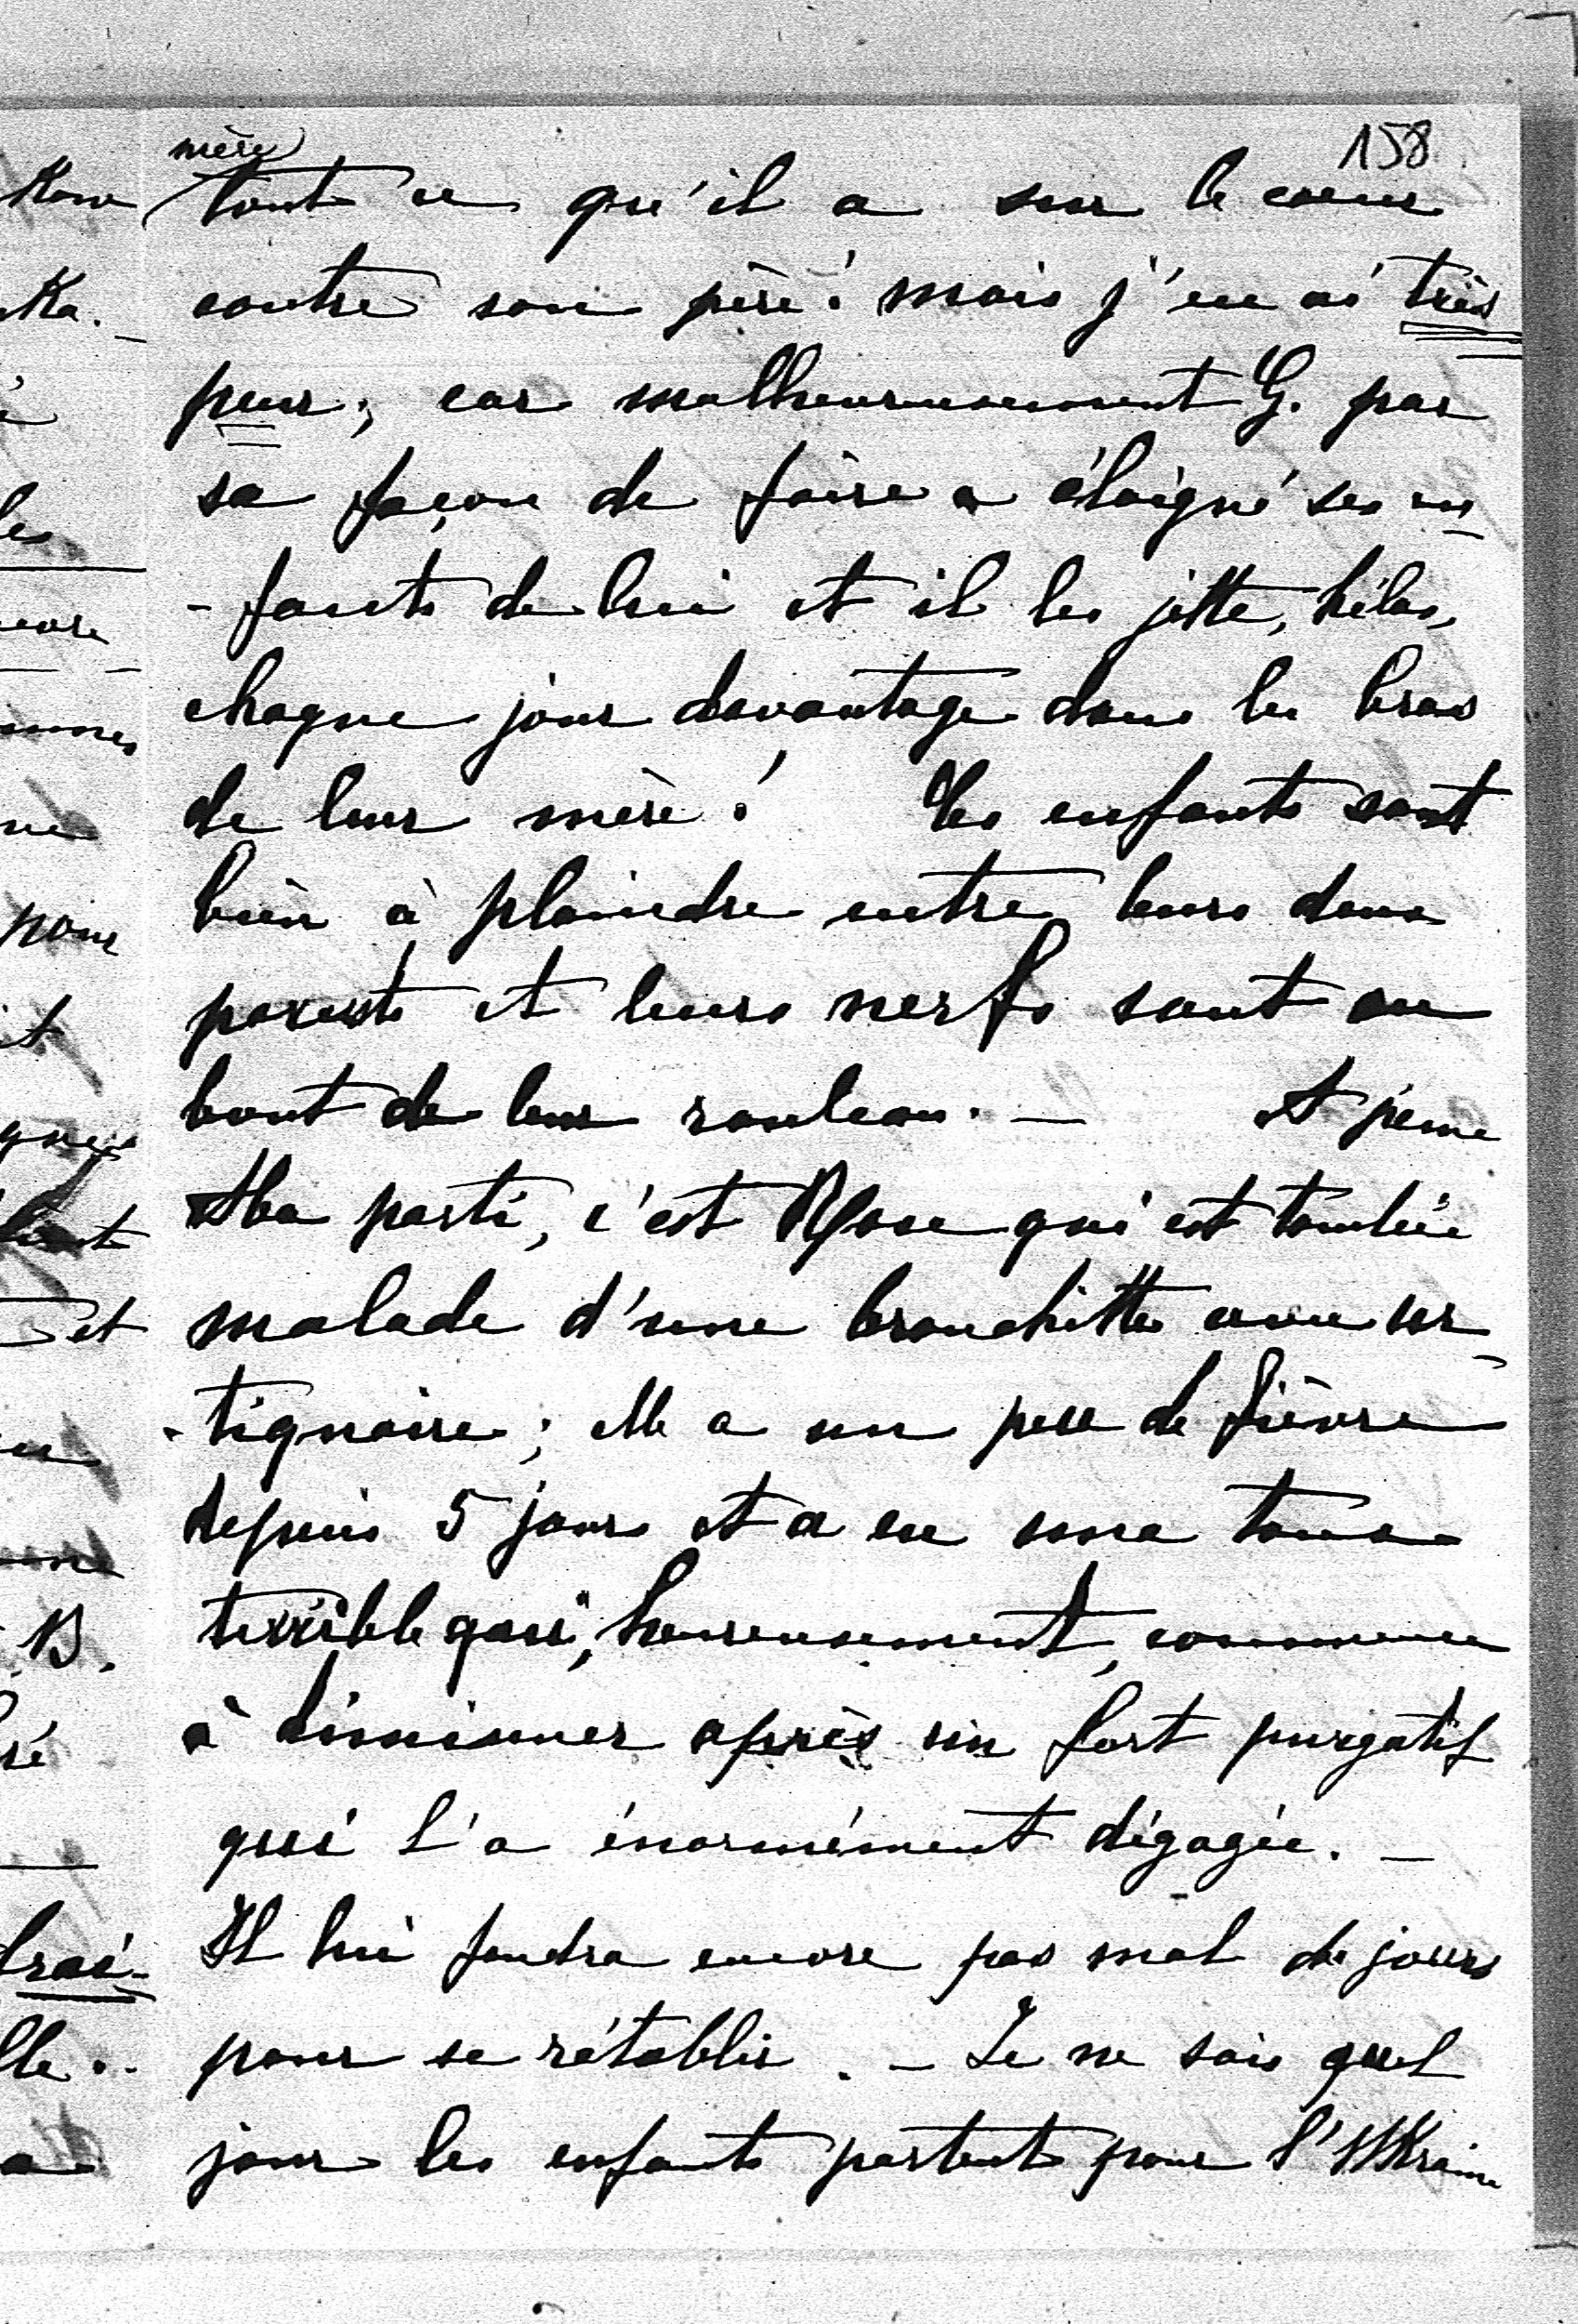 158
mère
tout ce qu'il a sur le coeur
contre son père! mais j'en ai très
peur; car malheureusement G. par
sa façon de faire a éloigné ses en-
-fants de lui et il les jette, hélas,
chaque jour davantage dans les bras
de leur mère! Les enfants sont
bien à plaindre entre leurs deux
parents et leurs nerfs sont au
bout de leur rouleau. — A peine
parti, c'est qui est tombée
malade d'une bronchitte avec ur-
-tiquaire; elle a un peu de fièvre
depuis 5 jours et a eu une toux
terrible qui, heureusement, commence
à diminuer après un fort purgatif
qui l'a énormément dégagée. —
Il lui faudra encore pas mal de jours
pour se rétablir. — Je ne sais quel
jour les enfants partent pour l'Ukraine